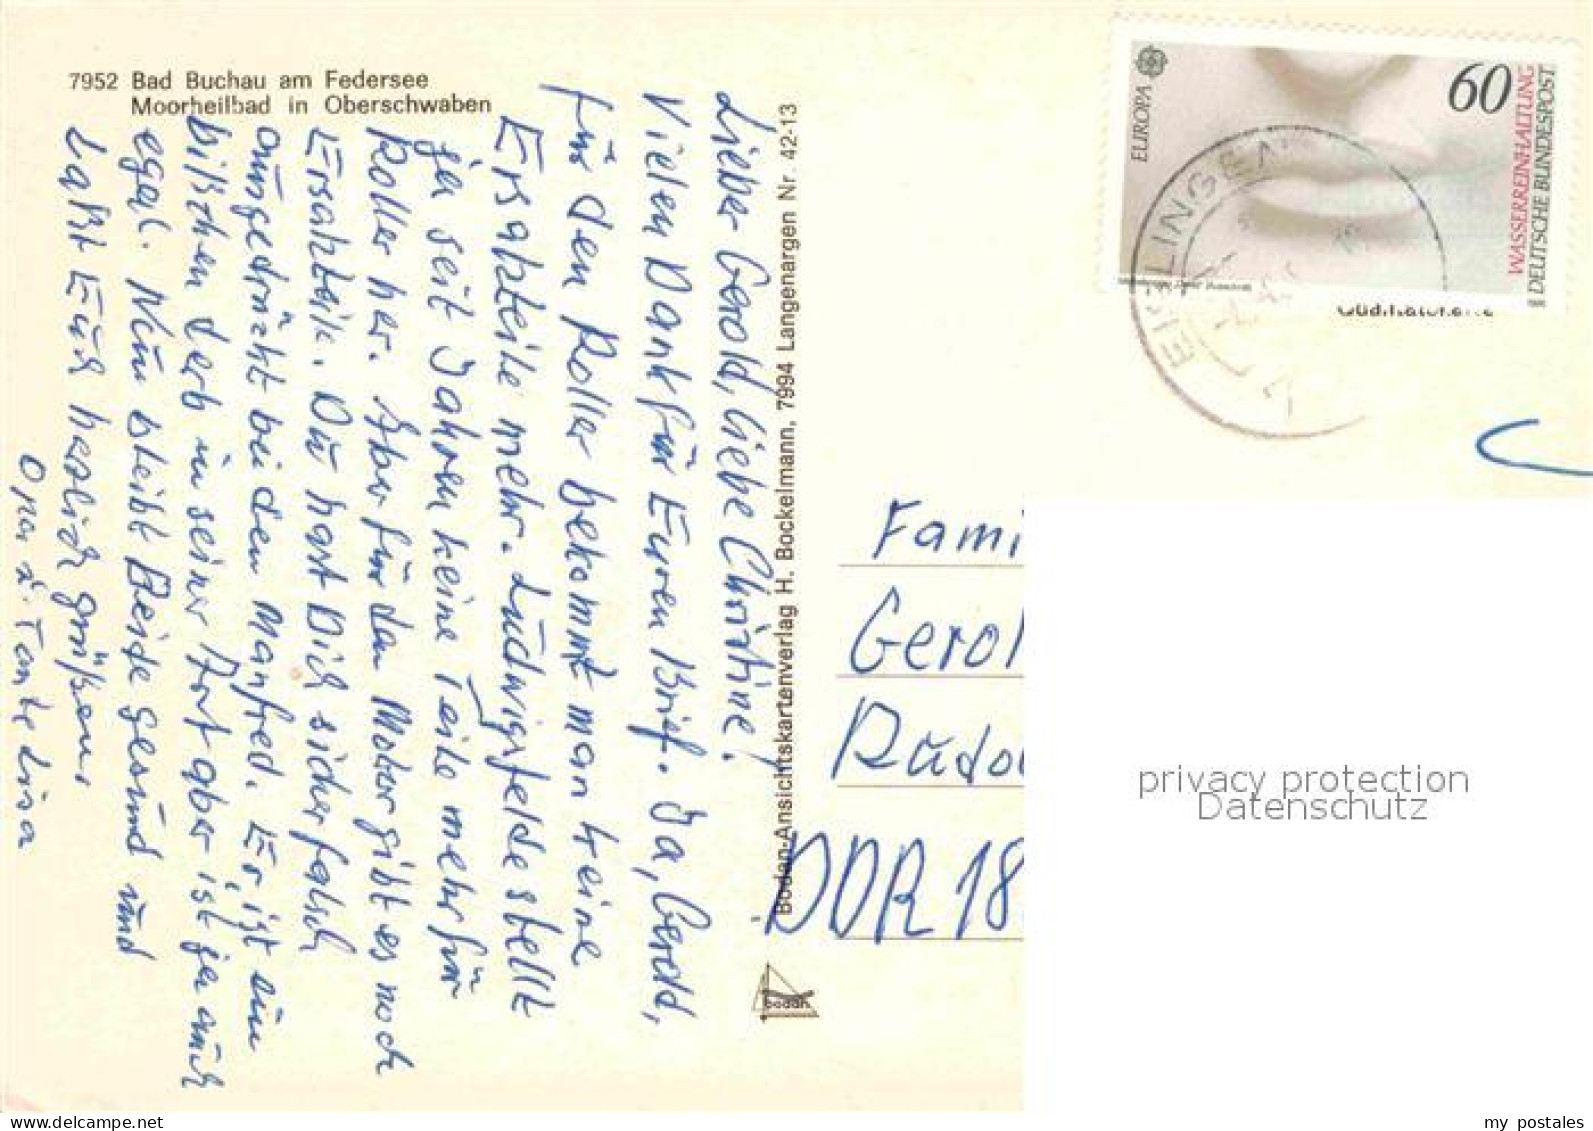 7952 Bad Buchau am Federsee
Moorheilbad in Oberschwaben
Lieber Gerold, liebe Christine!
Vielen Dank für Euren Brief. Ja, Gerold,
für den Roller bekommt man keine
Ersatzteile mehr. Ludwigsfelde stellt
ja seit Jahren keine Teile mehr für
Roller her. Aber für den Motor gibt es noch
Ersatzteile. Du hast Dich sicher falsch
ausgedrückt bei dem Manfred. Er ist ein
bißchen derb in seiner Art aber ist ja auch
egal. Nun bleibt Beide gesund und
Laßt Euch herzlich grüßen,
Oma u. Tante Lisa
Bodan-Ansichtskartenverlag H. Bockelmann, 7994 Langenargen Nr. 42-13
bodan
EUROPA
60
WASSERREINHALTUNG
DEUTSCHE BUNDESPOST
Fami
Gerol
Rudo
DDR 18
privacy protection
Datenschutz
delcampe.net
my_postales